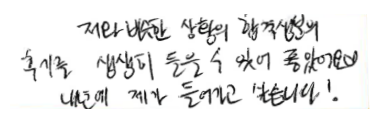 저와 비슷한 상황의 합격생분의
후기를 생생히 들을 수 있어 좋았어요♡
내년에 제가 들어가고 싶습니다!